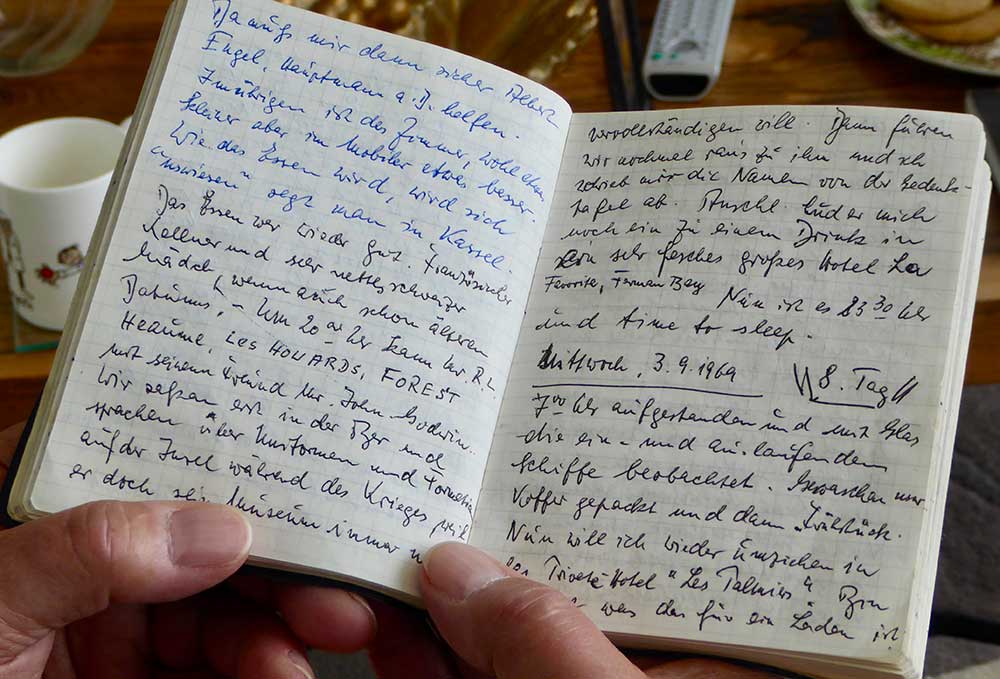 Da muß mir dann sicher Albert
Engel, Hauptmann a.D. helfen.
Im übrigen ist das Zimmer, wohl etwas
kleiner aber im Mobiliar etwas besser.
Wie das Essen wird, wird sich
"ausweisen" sagt man in Kassel.
Das Essen war wieder gut. Französischer
Kellner und sehr nettes schweizer
Mädch. (wenn auch schon älteren
Datums). - Um 20 00 Uhr kam der R.L.
Heaume, LES HOUARDS, FOREST
mit seinem Freund Mr. John Godwin.
Wir saßen erst in der Bar und
sprachen über Uniformen und Formation
auf der Insel während des Krieges weil
er doch sein Museum immer
vervollständigen will. Dann führen
wir nochmal raus zu ihm und ich
schrieb mir die Namen von der Gedenk-
tafel ab. Anschl. lud er mich
noch ein zu einem Drink in
ein sehr fesches großes Hotel La
Favorite, Fermain Bay Nun ist es 23 30 Uhr
und time to sleep.
Mittwoch, 3.9.1969 8. Tag
7 00 Uhr aufgestanden und mit Glas
die ein- und auslaufenden
Schiffe beobachtet. Gewaschen
Koffer gepackt und dann Frühstück.
Nun will ich wieder umziehen in
Privat-Hotel "Les Palmiers" Bin
was das für ein Laden ist